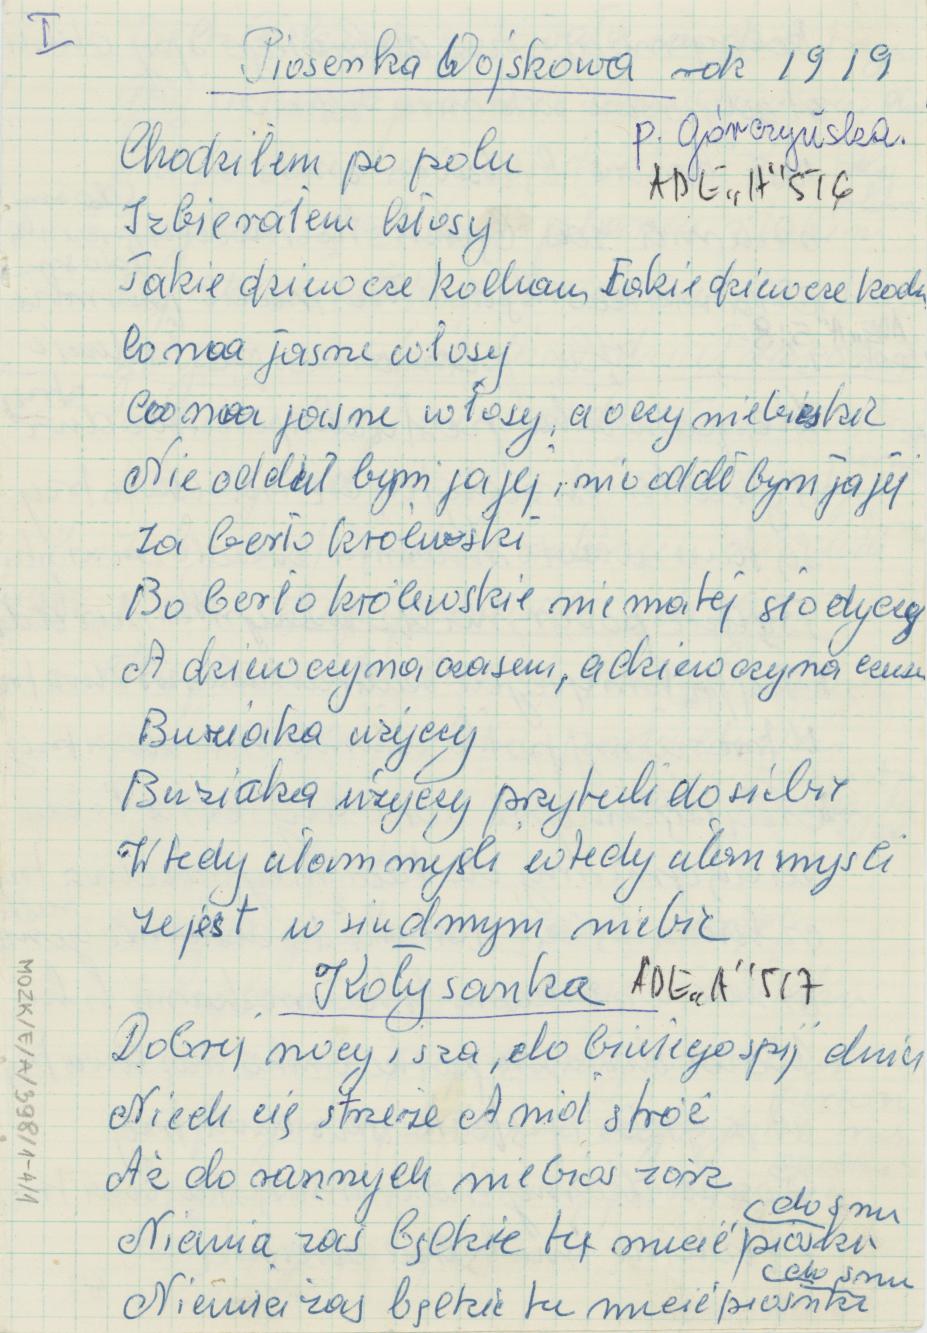 I
Piosenka Wojskowa rok 1919
p. Górczyńska.
Chodziłem po polu
ADE „A" 516
Izbierałem kłosy
Takie dziewcze kocham, Takie dziewcze koch
Co ma jasne włosy
Co ma jasne włosy, a oczy niebieskie
Nie oddał bym ja jej, nie oddł bym ja jej
Za berło królewski
Bo berło królewskie nie ma tej słodyczy
A dziewczyna czasem, a dziewczyna czasem
Buziaka użyczy
Buziaka użyczy przytuli do siebie
Wtedy ułan myśli wtedy ułan myśli
że jest w siudmym niebie
Kołysanka ADE „A" 517
Dobrej nocy i sza, do białego śpij dnia
Niech cię strzeże Anioł stróż
Aż do rannych niebios zórz
do snu
Niania zaś będzie tu nucić piosnkę
do snu
Niania zaś będzie tu nucić piosnkę
MOZK/E/A/398/1-4/1